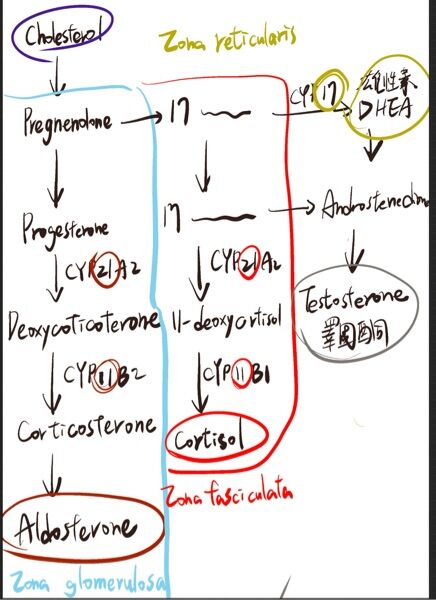 Cholesterol
Zona reticularis
Pregnenolone
17
CYP17
雄性素
DHEA
17
Androstenedione
Progesterone
CYP21A2
CYP21A2
Testosterone
睪固酮
Deoxycoticoterone
11-deoxycortisol
CYP11B2
CYP11B1
Corticosterone
Cortisol
Zona fasciculata
Aldosterone
Zona glomerulosa